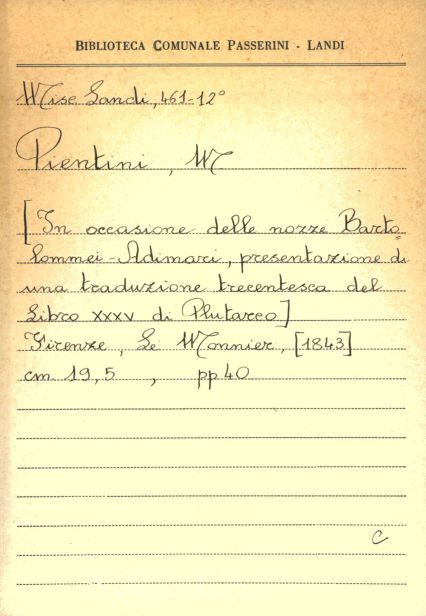 BIBLIOTECA COMUNALE PASSERINI - LANDI
Misc Landi, 461-12°
Pientini, M
[In occasione delle nozze Barto=
lommei-Adimari, presentazione di
una traduzione trecentesca del
Libro XXXV di Plutarco]
Firenze, Le Monnier, [1843]
cm 19,5 , pp 40
C